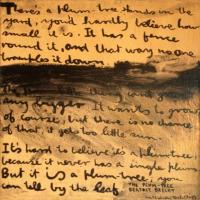 There's a plum-tree stands in the
yard, you'd hardly believe how
small it is. It has a fence
round it, and that way no one
tramples it down.
The
any bigger. It wants to grow
of course, but there is no chance
of that, it gets too little sun.
It's hard to believe it's a plum tree,
because it never has a single plum
But it is a plum-tree, you
can tell by the leaf.
THE PLUM-TREE
BERTOLT BRECHT